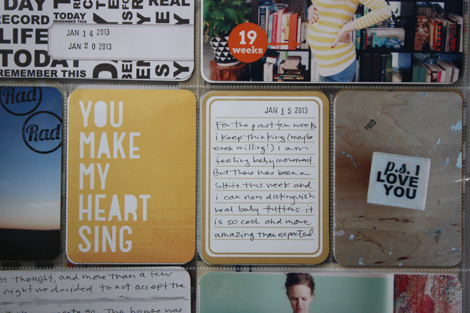 DAY TODAY
RECORD
LIFE
TODAY
REMEMBER THIS
JAN 14 2013
JAN 20 2013
19
weeks
Rad
Rad
YOU
MAKE
MY
HEART
SING
JAN 15 2013
For the past two weeks
i keep thinking (maybe
even willing!) I am
feeling baby movement.
But there has been a
shift this week and
i can now distinguish
real baby flutters. it
is so cool and more
amazing than expected.
2013
p.s. I
LOVE
YOU
for thought, and more than a few
right we decided to not accept the
The house was